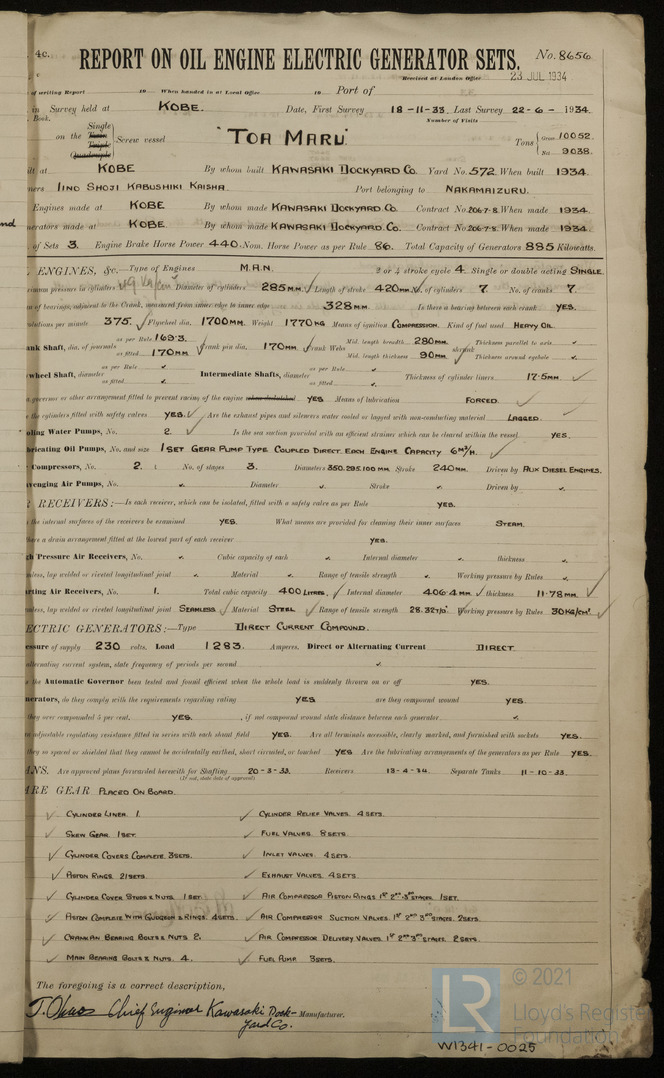 4c. REPORT ON OIL ENGINE ELECTRIC GENERATOR SETS. No. 8656
Received at London Office 23 JUL 1934
of writing Report 19 When handed in at Local Office 19 Port of
in Survey held at KOBE. Date, First Survey 18-11-33. Last Survey 22-6-1934.
Book. Number of Visits
on the Single Twin Triple Quadruple Screw vessel "TOA MARU" Tons Gross 10052. Net 9038.
ilt at KOBE By whom built KAWASAKI DOCKYARD CO. Yard No. 572. When built 1934.
ners IINO SHOJI KABUSHIKI KAISHA. Port belonging to NAKAMAIZURU.
Engines made at KOBE By whom made KAWASAKI DOCKYARD CO. Contract No. 206-7-8. When made 1934.
nerators made at KOBE By whom made KAWASAKI DOCKYARD CO. Contract No. 206-7-8. When made 1934.
. of Sets 3. Engine Brake Horse Power 440. Nom. Horse Power as per Rule 86. Total Capacity of Generators 885 Kilowatts.
ENGINES, &c.—Type of Engines M.A.N. 2 or 4 stroke cycle 4. Single or double acting SINGLE.
mum pressure in cylinders 49 Kg/cm² Diameter of cylinders 285 MM. Length of stroke 420 MM. No. of cylinders 7 No. of cranks 7.
n of bearings, adjacent to the Crank, measured from inner edge to inner edge 328 MM. Is there a bearing between each crank YES.
olutions per minute 375. Flywheel dia. 1700 MM. Weight 1770 KG Means of ignition COMPRESSION. Kind of fuel used HEAVY OIL.
ank Shaft, dia. of journals as per Rule 169.3. as fitted 170 MM. Crank pin dia. 170 MM. Crank Webs Mid. length breadth 280 MM. Mid. length thickness 90 MM. shrunk Thickness parallel to axis Thickness around eyehole
wheel Shaft, diameter as per Rule as fitted Intermediate Shafts, diameter as per Rule as fitted Thickness of cylinder liners 17.5 MM.
governor or other arrangement fitted to prevent racing of the engine when declutched YES Means of lubrication FORCED.
e the cylinders fitted with safety valves YES. Are the exhaust pipes and silencers water cooled or lagged with non-conducting material LAGGED.
oling Water Pumps, No. 2. Is the sea suction provided with an efficient strainer which can be cleared within the vessel YES.
bricating Oil Pumps, No. and size 1 SET GEAR PUMP TYPE COUPLED DIRECT. EACH ENGINE CAPACITY 6 M³/H.
Compressors, No. 2. No. of stages 3. Diameters 350.295.100 MM. Stroke 240 MM. Driven by AUX DIESEL ENGINES.
venging Air Pumps, No. Diameter Stroke Driven by
R RECEIVERS:—Is each receiver, which can be isolated, fitted with a safety valve as per Rule YES.
the internal surfaces of the receivers be examined YES. What means are provided for cleaning their inner surfaces STEAM.
here a drain arrangement fitted at the lowest part of each receiver YES.
gh Pressure Air Receivers, No. Cubic capacity of each Internal diameter thickness
mless, lap welded or riveted longitudinal joint Material Range of tensile strength Working pressure by Rules
rting Air Receivers, No. 1. Total cubic capacity 400 LITRES. Internal diameter 406.4 MM. thickness 11.78 MM.
mless, lap welded or riveted longitudinal joint SEAMLESS Material STEEL Range of tensile strength 28.32 T/□" Working pressure by Rules 30 KG/CM².
ECTRIC GENERATORS:—Type DIRECT CURRENT COMPOUND.
essure of supply 230 volts. Load 1283. Amperes. Direct or Alternating Current DIRECT.
alternating current system, state frequency of periods per second
s the Automatic Governor been tested and found efficient when the whole load is suddenly thrown on or off YES.
nerators, do they comply with the requirements regarding rating YES are they compound wound YES.
they over compounded 5 per cent. YES. , if not compound wound state distance between each generator
n adjustable regulating resistance fitted in series with each shunt field YES. Are all terminals accessible, clearly marked, and furnished with sockets YES.
they so spaced or shielded that they cannot be accidentally earthed, short circuited, or touched YES Are the lubricating arrangements of the generators as per Rule YES.
ANS. Are approved plans forwarded herewith for Shafting 20-3-33. Receivers 13-4-34. Separate Tanks 11-10-33.
(If not, state date of approval)
ARE GEAR PLACED ON BOARD.
CYLINDER LINER. 1. CYLINDER RELIEF VALVES. 4 SETS.
SKEW GEAR. 1 SET. FUEL VALVES. 8 SETS.
CYLINDER COVERS COMPLETE. 3 SETS. INLET VALVES. 4 SETS.
PISTON RINGS. 21 SETS. EXHAUST VALVES. 4 SETS.
CYLINDER COVER STUDS & NUTS. 1 SET. AIR COMPRESSOR PISTON RINGS 1ST 2ND 3RD STAGES. 1 SET.
PISTON COMPLETE WITH GUDGEON & RINGS. 4 SETS. AIR COMPRESSOR SUCTION VALVES. 1ST 2ND 3RD STAGES. 2 SETS.
CRANKPIN BEARING BOLTS & NUTS. 2. AIR COMPRESSOR DELIVERY VALVES. 1ST 2ND 3RD STAGES. 2 SETS.
MAIN BEARING BOLTS & NUTS. 4. FUEL PUMP. 3 SETS.
The foregoing is a correct description,
Chief Engineer Kawasaki Dock- Manufacturer.
yard Co.
© 2021
LR Lloyd's Register
Foundation
W1341-0025